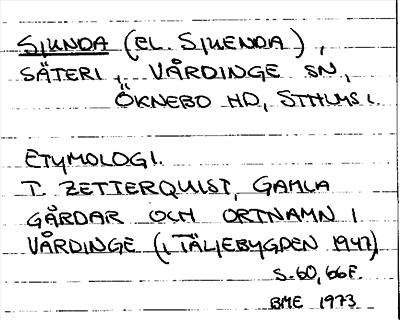 SJUNDA (EL. SJUENDA),
SÄTERI, VÅRDINGE SN,
ÖKNEBO HD, STHLMS L.
ETYMOLOGI.
T. ZETTERQUIST, GAMLA
GÅRDAR OCH ORTNAMN I
VÅRDINGE (I TÄLJEBYGDEN 1947)
S. 60, 66 F.
BME 1973